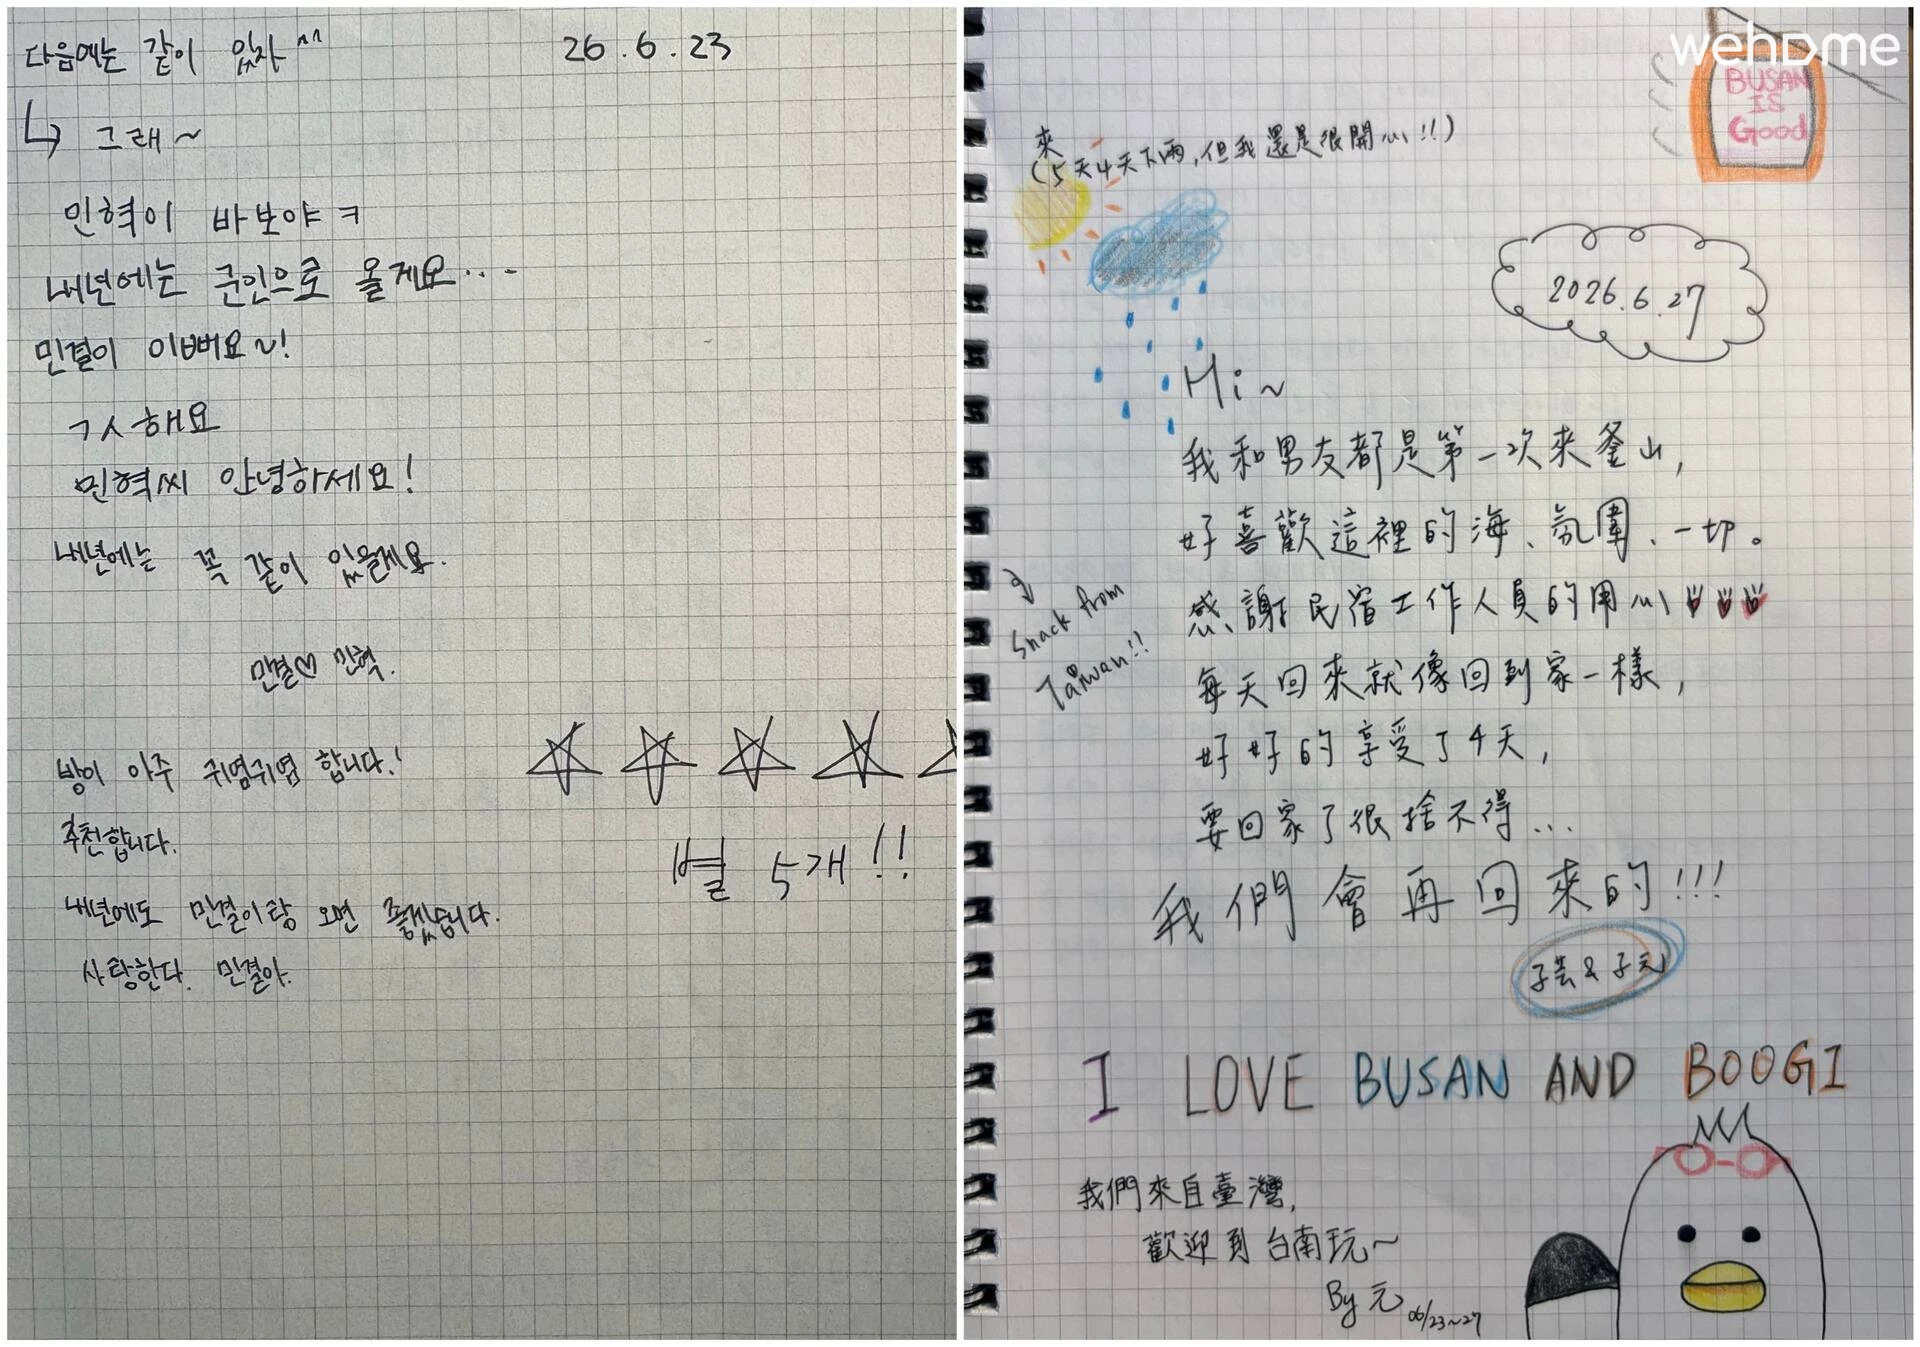 다음에는 같이 있자 ^^
26.6.23
↳ 그래~
민혁이 바보야 ㅋ
내년에는 군인으로 올게요...
민결이 이뻐요~!
ㄱㅅ해요
민혁씨 안녕하세요!
내년에는 꼭 같이 있을게요.
민결♡민혁.
방이 아주 귀염귀염 합니다!
추천합니다.
별 5개!!
내년에도 민결이랑 오면 좋겠습니다.
사랑한다. 민결아.
wehome
BUSAN
IS
Good
來
(5天4天下雨,但我還是很開心!!)
2026.6.27
Hi~
我和男友都是第一次來釜山,
好喜歡這裡的海、氛圍、一切。
感謝民宿工作人員的用心
Snack from
Taiwan!!
每天回來就像回到家一樣,
好好的享受了4天,
要回家了很捨不得...
我們會再回來的!!!
子芸&子元
I LOVE BUSAN AND BOOGI
我們來自臺灣,
歡迎到台南玩~
By 元 06/23~27